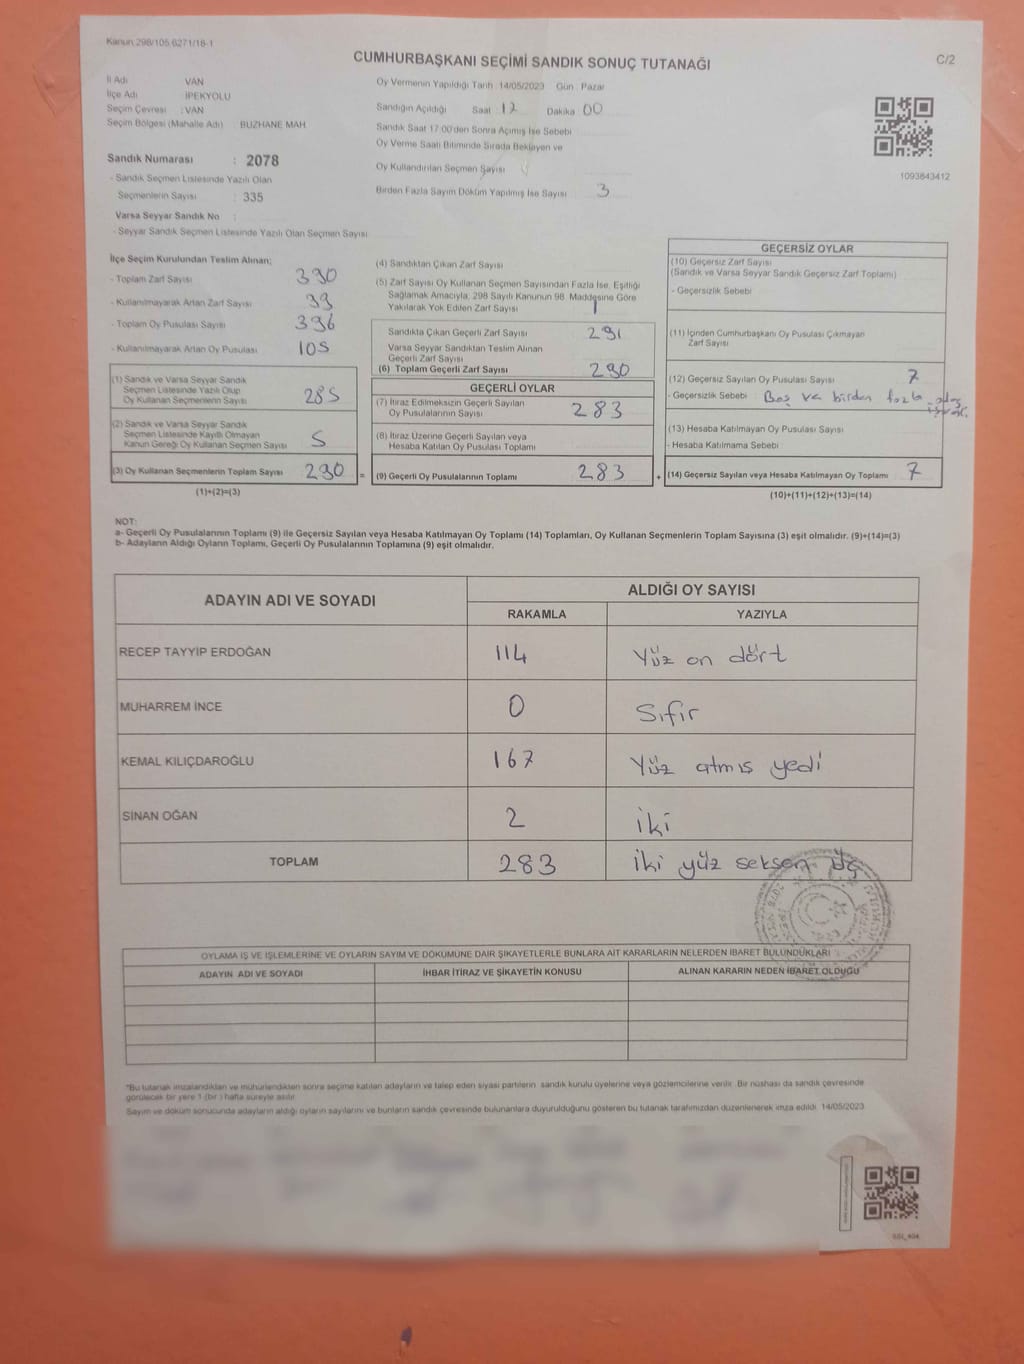 Kanun 298/105 6271/18-1
CUMHURBAŞKANI SEÇİMİ SANDIK SONUÇ TUTANAĞI
C/2
İl Adı VAN
İlçe Adı İPEKYOLU
Seçim Çevresi : VAN
Seçim Bölgesi (Mahalle Adı) BUZHANE MAH
Sandık Numarası : 2078
- Sandık Seçmen Listesinde Yazılı Olan
Seçmenlerin Sayısı : 335
Varsa Seyyar Sandık No :
- Seyyar Sandık Seçmen Listesinde Yazılı Olan Seçmen Sayısı
Oy Vermenin Yapıldığı Tarih 14/05/2023 Gün Pazar
Sandığın Açıldığı Saat 17 Dakika 00
Sandık Saat 17:00'den Sonra Açılmış İse Sebebi
Oy Verme Saati Bitiminde Sırada Bekleyen ve
Oy Kullandırılan Seçmen Sayısı
Birden Fazla Sayım Döküm Yapılmış İse Sayısı 3
1093843412
İlçe Seçim Kurulundan Teslim Alınan;
- Toplam Zarf Sayısı 390
- Kullanılmayarak Artan Zarf Sayısı 99
- Toplam Oy Pusulası Sayısı 396
- Kullanılmayarak Artan Oy Pusulası 105
(1) Sandık ve Varsa Seyyar Sandık
Seçmen Listesinde Yazılı Olup
Oy Kullanan Seçmenlerin Sayısı 285
(2) Sandık ve Varsa Seyyar Sandık
Seçmen Listesinde Kayıtlı Olmayan
Kanun Gereği Oy Kullanan Seçmen Sayısı 5
(3) Oy Kullanan Seçmenlerin Toplam Sayısı 290 =
(1)+(2)=(3)
(4) Sandıktan Çıkan Zarf Sayısı
(5) Zarf Sayısı Oy Kullanan Seçmen Sayısından Fazla İse, Eşitliği
Sağlamak Amacıyla, 298 Sayılı Kanunun 98. Maddesine Göre
Yakılarak Yok Edilen Zarf Sayısı 1
Sandıkta Çıkan Geçerli Zarf Sayısı 291
Varsa Seyyar Sandıktan Teslim Alınan
Geçerli Zarf Sayısı
(6) Toplam Geçerli Zarf Sayısı 290
GEÇERLİ OYLAR
(7) İtiraz Edilmeksizin Geçerli Sayılan
Oy Pusulalarının Sayısı 283
(8) İtiraz Üzerine Geçerli Sayılan veya
Hesaba Katılan Oy Pusulaları Toplamı
(9) Geçerli Oy Pusulalarının Toplamı 283 +
GEÇERSİZ OYLAR
(10) Geçersiz Zarf Sayısı
(Sandık ve Varsa Seyyar Sandık Geçersiz Zarf Toplamı)
- Geçersizlik Sebebi
(11) İçinden Cumhurbaşkanı Oy Pusulası Çıkmayan
Zarf Sayısı
(12) Geçersiz Sayılan Oy Pusulası Sayısı 7
- Geçersizlik Sebebi Boş ve birden fazla
(13) Hesaba Katılmayan Oy Pusulası Sayısı
- Hesaba Katılmama Sebebi
(14) Geçersiz Sayılan veya Hesaba Katılmayan Oy Toplamı 7
(10)+(11)+(12)+(13)=(14)
NOT:
a- Geçerli Oy Pusulalarının Toplamı (9) ile Geçersiz Sayılan veya Hesaba Katılmayan Oy Toplamı (14) Toplamları, Oy Kullanan Seçmenlerin Toplam Sayısına (3) eşit olmalıdır. (9)+(14)=(3)
b- Adayların Aldığı Oyların Toplamı, Geçerli Oy Pusulalarının Toplamına (9) eşit olmalıdır.
ADAYIN ADI VE SOYADI
ALDIĞI OY SAYISI
RAKAMLA YAZIYLA
RECEP TAYYİP ERDOĞAN 114 Yüz on dört
MUHARREM İNCE 0 Sıfır
KEMAL KILIÇDAROĞLU 167 Yüz atmıs yedi
SİNAN OĞAN 2 iki
TOPLAM 283 iki yüz seksen üç
OYLAMA İŞ VE İŞLEMLERİNE VE OYLARIN SAYIM VE DÖKÜMÜNE DAİR ŞİKAYETLERLE BUNLARA AİT KARARLARIN NELERDEN İBARET BULUNDUKLARI
ADAYIN ADI VE SOYADI İHBAR İTİRAZ VE ŞİKAYETİN KONUSU ALINAN KARARIN NEDEN İBARET OLDUĞU
*Bu tutanak imzalandıktan ve mühürlendikten sonra seçime katılan adayların ve talep eden siyasi partilerin sandık kurulu üyelerine veya gözlemcilerine verilir. Bir nüshası da sandık çevresinde
görülecek bir yere 1 (bir ) hafta süreyle asılır.
Sayım ve döküm sonucunda adayların aldığı oyların sayılarını ve bunların sandık çevresinde bulunanlara duyurulduğunu gösteren bu tutanak tarafımızdan düzenlenerek imza edildi. 14/05/2023